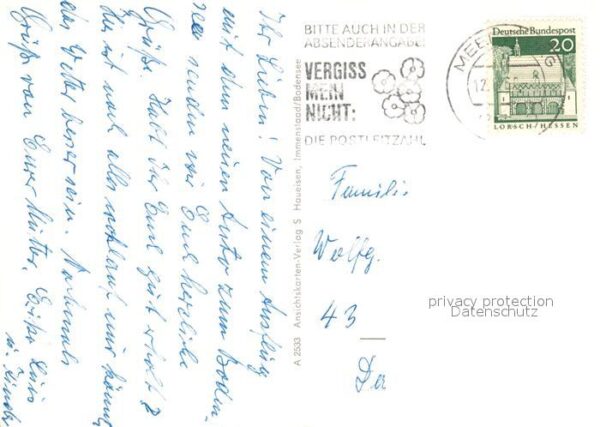 Ihr Lieben! Von einem Ausflug
mit dem neuen Auto zum Boden-
see senden wir Euch herzliche
Grüße. Habt Ihr Euch gut erholt?
hier ist noch alles wohlauf nur könnte
das Wetter besser sein. Nochmals
Grüße von Eurer Mutter, Erika
A 2533 Ansichtskarten-Verlag S Haueisen, Immenstaad/Bodensee
BITTE AUCH IN DER
ABSENDERANGABE:
VERGISS
MEIN
NICHT:
DIE POSTLEITZAHL
MEE
Deutsche Bundespost
20
LORSCH/HESSEN
Familie
Wolfg.
43
privacy protection
Datenschutz